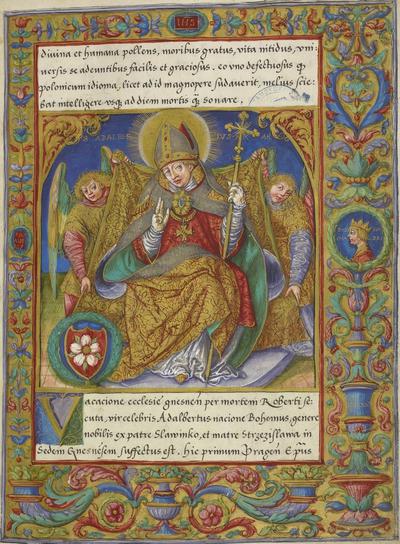 1115
divina et humana pollens, moribus gratus, vita nitidus, vni:
versis se adeuntibus facilis et graciosus. eo vno defectuosus q
polonicum idioma, licet ad id magnopere sudauerit, melius scie:
bat intelligere vsq ad diem mortis q sonare,
ADALBER
acacione ecclesiē gnesnen per mortem Roberti se:
cuta, vir celebris Adalbertus nacione Bohemus, genere
nobilis ex patre Slawinko, et matre Strzezislawa in
sedem Gnesnēsem suffectus est. hic primum Pragen Epus